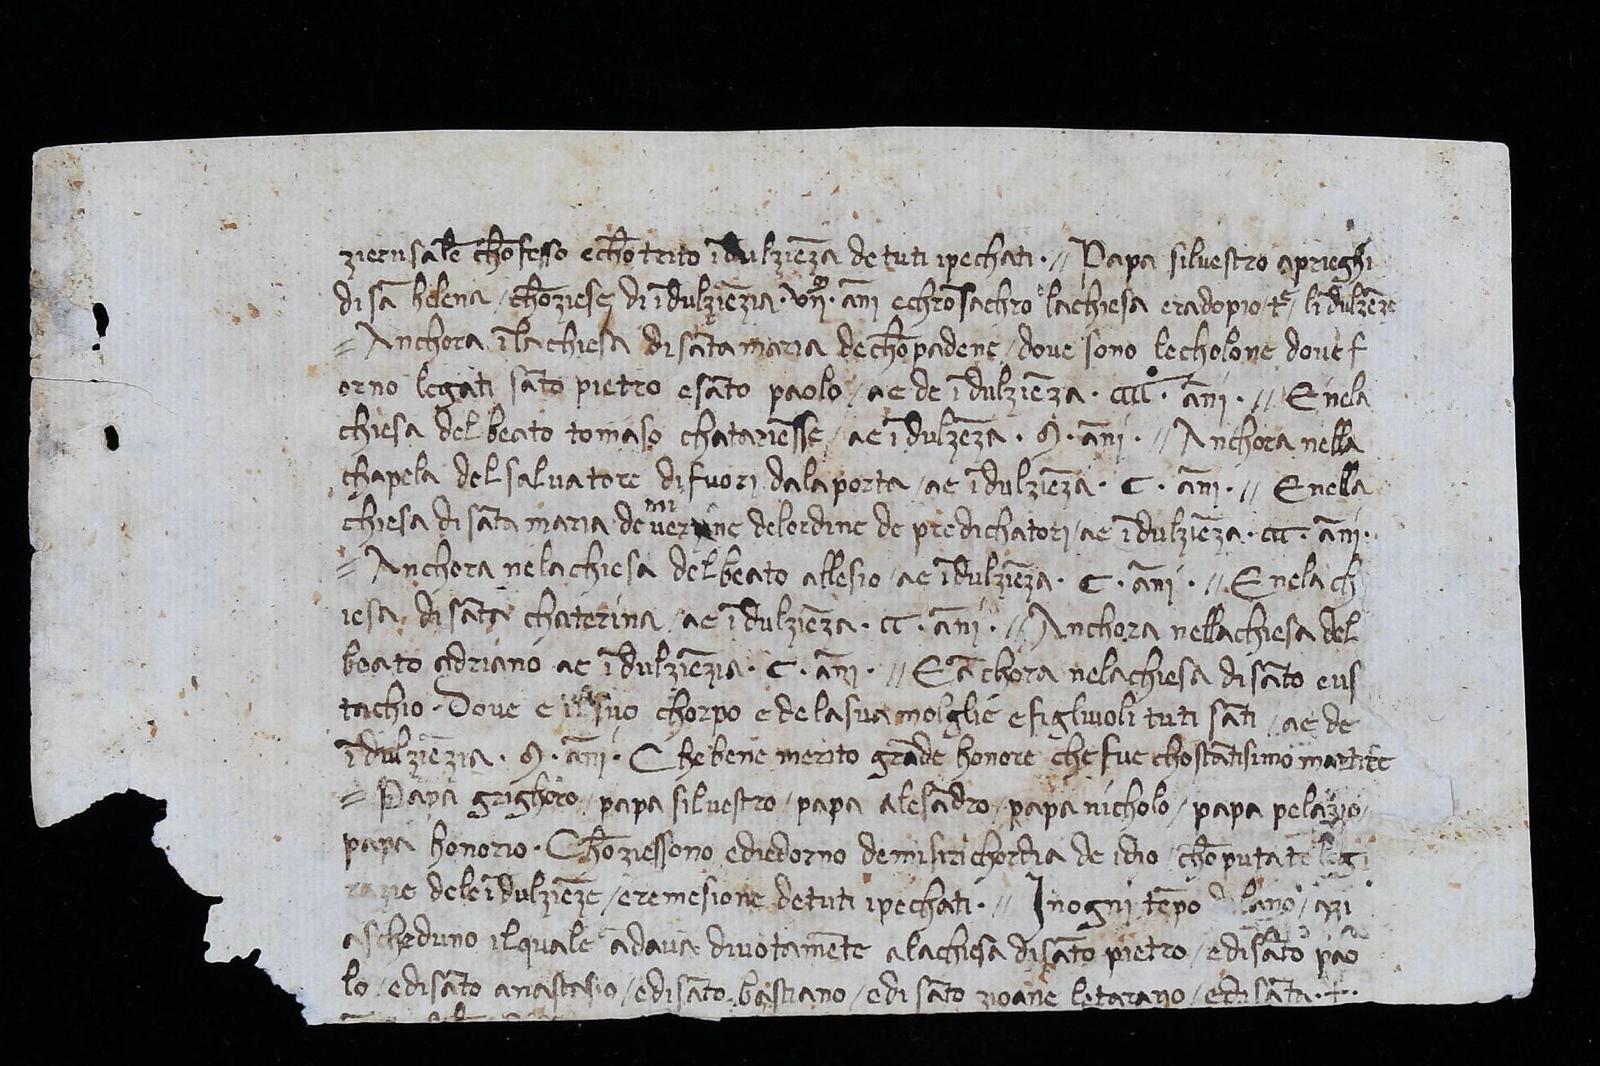 zierusalē chōfesso echōtrito īdulziēza de tuti ipechati · // Papa silvestro aprieghi
di sā helena / chōziese di īdulziēzia · · āni echrōsachro lachiesa eradopio / līdulzēze
= Anchora īlachiesa di sāta maria de chōpadene / dove sono lecholone dove f
orno legati sāto pietro esāto paolo / ae de īdulziēza · CCC · āni · // Enela
chiesa del beato tomaso chatariēsse / ae īdulzēza · āni · // Anchora nella
chapela del salvatore di fuori dala porta / ae īdulziēza · C · āni · // Enella
chiesa di sāta maria de delordine de predichatori / ae īdulziēza · CC · āni ·
= Anchora nela chiesa del beato allesio / ae īdulziēza · C · āni · // Enela ch
iesa di sāta chaterina / ae īdulziēza · CC · āni · // Anchora nella chiesa del
beato adriano ae īdulziēzia · C · āni · // Eāchora nela chiesa di sāto eus
tachio · Dove e il suo chorpo e de la sua molglie e figliuoli tuti sāti / ae de
īdulziēzia · āni · Che bene merito grāde honore che fue chostātisimo martire
= Papa grighoro / papa silvestro / papa alesādro / papa nicholo / papa pelazio /
papa honorio · Chōziessono ediedorno de misirichordia de idio / chōputate
dele īdulziēze / eremesione de tuti ipechati · // In ogni tēpo lano / azi
ascheduno il quale ādava divotamēte a lachiesa di sāto pietro / e di sāto pao
lo / e di sāto anastasio / e di sāto bastiano / e di sāto zioane / e di sāta · + ·